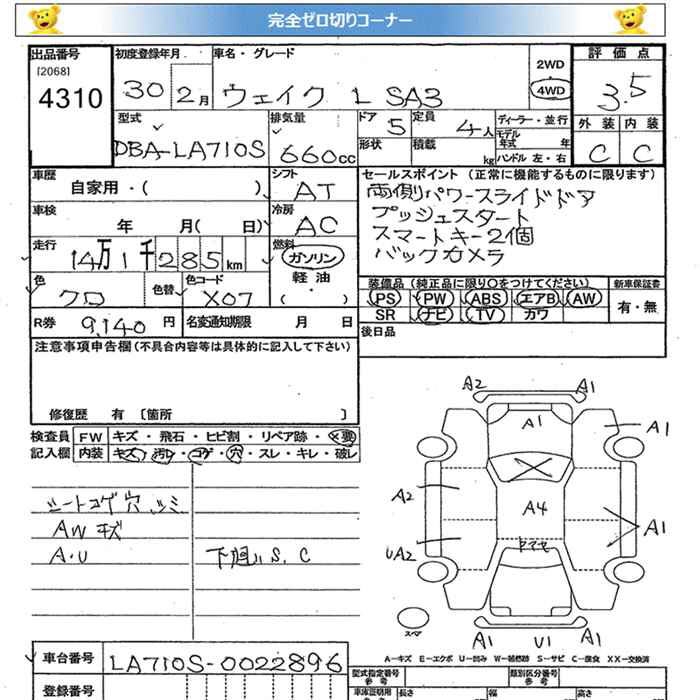 完全ゼロ切りコーナー
出品番号
[2068]
4310
初度登録年月
30 2月
車名・グレード
ウェイク L SA3
2WD
4WD
評価点
3.5
外装 内装
C C
型式
DBA-LA710S
排気量
660cc
ドア 5
形状
定員 4人
積載 kg
ディーラー・並行
モデル
年式 年
ハンドル 左・右
車歴
自家用・( )
シフト
AT
車検
年 月( 日)
冷房
AC
走行
14万1千285km
燃料
ガソリン
軽油
・( )
色
クロ
色替
色コード
X07
R券 9,140円
名変通知期限 月 日
セールスポイント (正常に機能するものに限ります)
両側パワースライドドア
プッシュスタート
スマートキー2個
バックカメラ
装備品(純正品に限り○をつけてください)
PS PW ABS エアB AW
SR ナビ TV カワ
新車保証書
有・無
後日品
注意事項申告欄(不具合内容等は具体的に記入して下さい)
修復歴 有 [箇所 ]
検査員
記入欄
FW キズ・飛石・ヒビ割・リペア跡・×要
内装 キズ・汚レ・コゲ・穴・スレ・キレ・破レ
シートコゲ穴 シミ
AWキズ
A・U
下廻り S、C
A2 A1
A1
A1
A2
A4
A1
UA2
ヤマセ
スペア
A1 U1 A1
A-キズ E-エクボ U-凹み W-補修跡 S-サビ C-腐食 XX-交換済
車台番号
LA710S-0022896
登録番号
型式指定番号
参考
類別区分番号
参考
車庫証明用
参考
長さ
幅
高さ